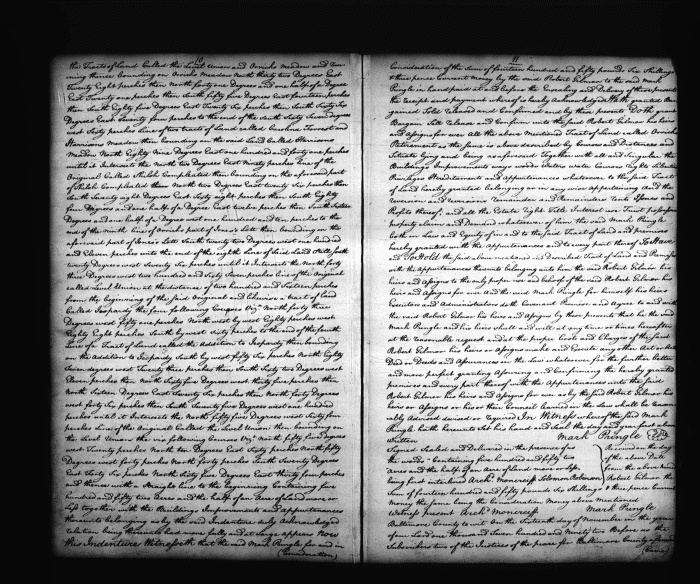 10
the Tracts of Land Called the Level Union and Orricks Meadow and run
ning thence bounding on Orricks Meadow North thirty two Degrees East
Twenty Eight perches then North forty one Degrees and one half of a Degree
East Twenty one perches then South fifty five Degrees East fourteen perches
then South Eighty five Degrees East Twenty Six perches then South Sixty Six
Degrees East Seventy four perches to the end of the South Sixty Seven degrees
west Sixty perches line of two tracts of Land called Carolina Forrest and
Harrisons Meadow then bounding on the said Land Called Harrisons
Meadow North Eighty Seven Degrees East one hundred and forty one perches
until it Intersects the North two Degrees East Ninety perches line of the
Original Called Shiloh Compleated then bounding on the aforesaid part
of Shiloh Compleated North two Degrees East twenty Six perches then
South Seventy eight Degrees East Sixty eight perches then South Eighty
four Degrees and one half of a Degree East twelve perches then South Sixteen
Degrees and one half of a Degree west one hundred and ten perches to the
end of the Ninth line of Orricks part of Jones's Lott then bounding on the
aforesaid part of Jones's Lott South twenty two Degrees west one hundred
and Eleven perches unto the end of the eight line of said Land
twenty Degrees west Seventy Six perches until it Intersects the North forty
three Degrees west two hundred and Sixty Seven perches line of the Original
called Level Union at the distance of two hundred and Sixteen perches
from the beginning of the said Original and likewise a tract of Land
Called Jeopardy the four following Courses Viz. North forty three
Degrees west fifty one perches North west by west Eighty perches west
Eighty Eight perches South by west Sixty perches to the end of the fourth
line of a Tract of Land called the Addition to Jeopardy then bounding
on the Addition to Jeopardy South by west fifty Six perches North Eighty
Seven degrees west twenty perches then South Sixty two degrees west
Eleven perches then North Sixty five Degrees west thirty five perches then
North Sixteen Degrees East Seventy Six perches then North Sixty Degrees
west forty Six perches then South Seventy four Degrees west one hundred
perches until it Intersects the North fifty five Degrees west Sixty four
perches line of the Original Called the Level Union then bounding on
the Level Union the six following Courses Viz. North fifty five degrees
west Twenty perches North ten Degrees East Sixty perches North fifty
Degrees west forty perches North forty perches South Seventy Degrees
East forty Six perches North Sixty five Degrees East Thirty four perches
and thence with a Straight line to the beginning Containing five
hundred and fifty two Acres and the half of an Acre of Land more or
Less together with the Buildings Improvements and appurtenances
thereunto belonging as by the said Indenture duly Acknowledged
relation being thereunto had more fully and at large appears Now
this Indenture Witnesseth that the said Mark Pringle for and in
(Consideration)
11
Consideration of the Sum of fourteen hundred and fifty pounds Six Shillings
& three pence Current Money by the said Robert Gilmor to the said Mark
Pringle in hand paid at & before the Ensealing and Delivery of these presents
the receipt and payment whereof is hereby Acknowledged Hath granted Bar
gained Sold Released and Confirmed and by these presents Doth grant
Bargain Sell Release and Confirm unto the said Robert Gilmor his heirs
and Assigns for ever All the above Mentioned Tract of Land called Orricks
Retirement as the same is above described by Courses and Distances and
Situate lying and being as aforesaid Together with all and Singular the
Buildings Improvements ways woods Waters water Courses Rights Liberties
Privileges Hereditaments and Appurtenances whatsoever to the said Tract
of Land hereby granted belonging or in any wise appertaining and the
reversion and reversions Remainder and Remainders Rents Issues and
Profits thereof, and all the Estate Right Title Interest use Trust possession
property claim and Demand whatsoever of him the said Mark Pringle
both in Law and Equity of in and to the said Tract of Land and premises
hereby granted with the Appurtenances and to every part thereof To Have
and To Hold the said above mentioned and Described Tract of Land and Premises
with the Appurtenances thereunto belonging unto him the said Robert Gilmor his
heirs and Assigns to the only proper use and behoof of the said Robert Gilmor his
heirs and Assigns for ever and the said Mark Pringle for himself his heirs
Executors and Administrators doth Covenant Promise and Agree to and with
the said Robert Gilmor his heirs and Assigns by these presents that he the said
Mark Pringle and his heirs shall and will at any time or times hereafter
at the reasonable request and at the proper Costs and Charges of the said
Robert Gilmor his heirs or Assigns make and Execute any other Act or Acts
Deed or Deeds and Assurances in the Law whatsoever for the further better
and more perfect granting Assuring and Confirming the hereby granted
premises and every part thereof with the Appurtenances unto the said
Robert Gilmor his heirs and Assigns for ever as by the said Robert Gilmor his
heirs or Assigns or his or their Council learned in the Law shall be reason
ably Advised devised or required In Witness whereof the said Mark
Pringle hath hereunto Set his hand and Seal the day and year first above
written Mark Pringle
Signed Sealed and Delivered in the presence of us
the words "Containing five hundred and fifty two
acres and the half of an Acre of Land more or less
being first interlined Archd. Moncrieff Solomon Robinson
Received on the day
of the above Date
from the above named
Robert Gilmor the
Sum of fourteen hundred and fifty pounds Six Shillings & three pence Current
money the same being the Consideration Money above Mentioned
Witness Present Archd. Moncrieff Mark Pringle
Baltimore County to wit On the Sixteenth day of November in the year
of our Lord one thousand Seven hundred and Ninety two Before us the
Subscribers two of the Justices of the peace for Baltimore County